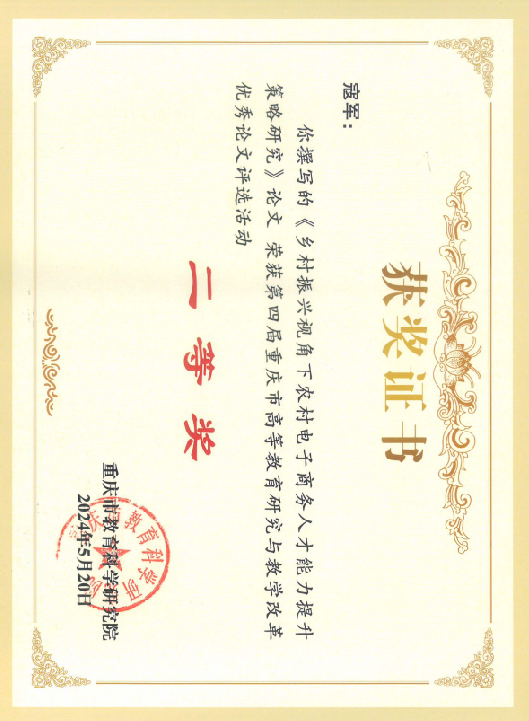 获奖证书
寇军：
你撰写的《乡村振兴视角下农村电子商务人才能力提升
策略研究》论文 荣获第四届重庆市高等教育研究与教学改革
优秀论文评选活动
二等奖
重庆市教育科学研究院
2024年5月20日